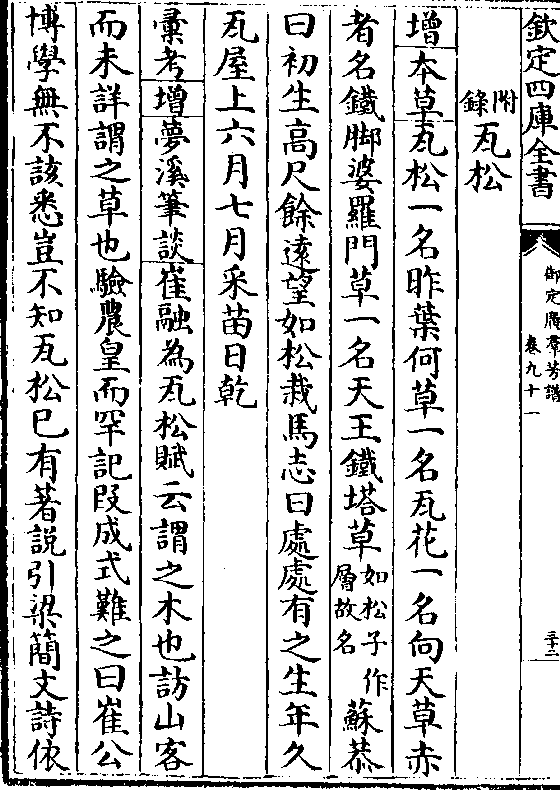 欽定四庫全書
御定廣羣芳譜
卷九十一
三十二
附錄
瓦松
增本草瓦松一名昨葉何草一名瓦花一名向天草赤
者名鐵脚婆羅門草一名天王鐵塔草如松子作層故名蘇恭
曰初生高尺餘遠望如松栽馬志曰處處有之生年久
瓦屋上六月七月采苗日乾
彚考增夢溪筆談崔融為瓦松賦云謂之木也訪山客
而未詳謂之草也驗農皇而罕記段成式難之曰崔公
博學無不該悉豈不知瓦松已有著說引梁簡文詩依